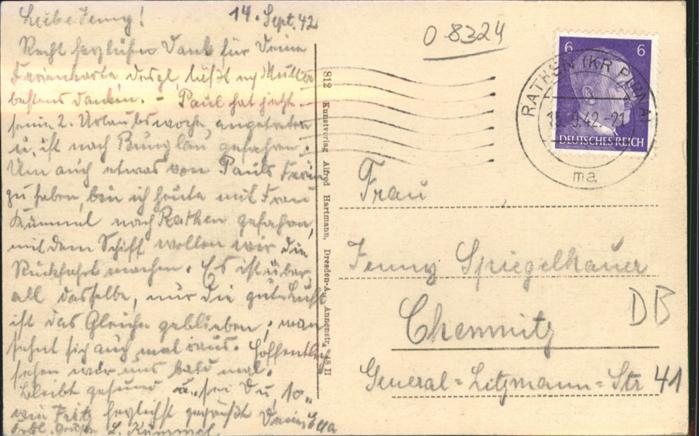 Liebe Jenny!
14. Sept. 42
Recht herzlichen Dank für Deine
Ferienkarte desgl. läßt auch Mutter
bestens danken. – Paul hat jetzt
seine 2. Urlaubswoche angetreten
u. ist nach Bunzlau gefahren.
Um auch etwas von Pauls Ferien
zu haben, bin ich heute mit Frau
Kümmel nach Rathen gefahren,
mit dem Schiff wollen wir die
Rückfahrt machen. Es ist über-
all dasselbe, nur die gute Luft
ist das Gleiche geblieben, man
sehnt sich auch mal raus. Hoffentlich
sehen wir uns bald mal.
Bleibt gesund u. sei Du, so-
wie Fritz herzlichst gegrüßt Deine
L. Kümmel
812 Kunstverlag Alfred Hartmann, Dresden-A., Annenstr. 48 II
O 8324
6 6
DEUTSCHES REICH
RATHEN (KR PIRNA)
9.42.-21
ma
Frau
Jenny Spiegelhauer
DB
Chemnitz
General-Litzmann-Str 41